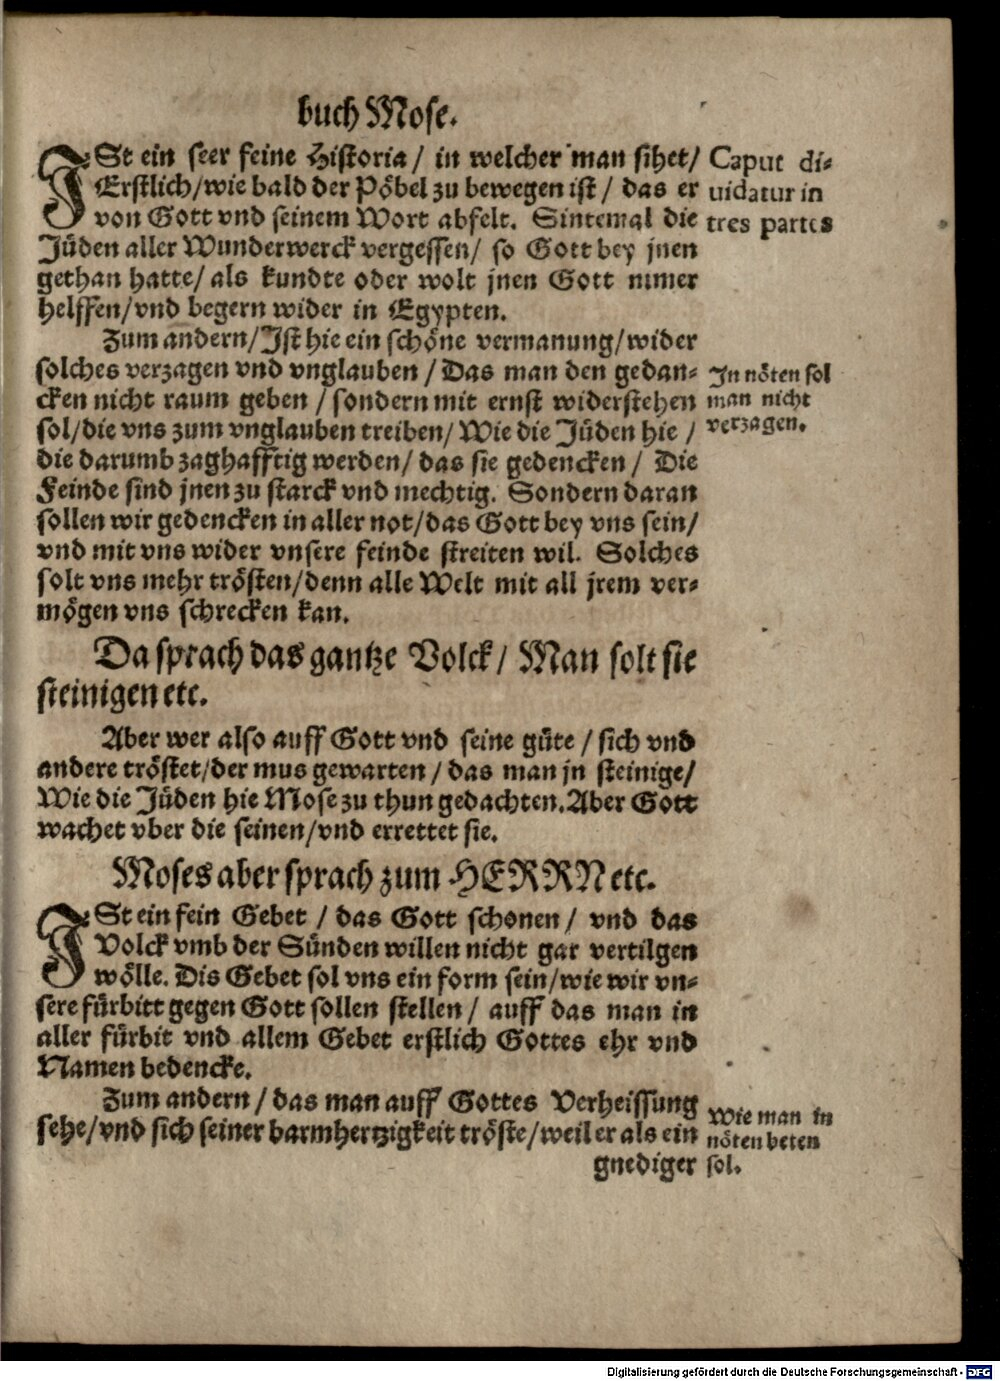 buch Mose.
ISt ein seer feine Historia / in welcher man sihet/
Erstlich/wie bald der Pöbel zu bewegen ist / das er
von Gott vnd seinem Wort abfelt. Sintemal die
Jüden aller Wunderwerck vergessen/ so Gott bey jnen
gethan hatte/ als kundte oder wolt jnen Gott nimer
helffen/vnd begern wider in Egypten.
Caput di-
uidatur in
tres partes
Zum andern/Ist hie ein schöne vermanung/wider
solches verzagen vnd vnglauben / Das man den gedan-
cken nicht raum geben / sondern mit ernst widerstehen
sol/die vns zum vnglauben treiben/ Wie die Jüden hie /
die darumb zaghafftig werden/ das sie gedencken / Die
Feinde sind jnen zu starck vnd mechtig. Sondern daran
sollen wir gedencken in aller not/das Gott bey vns sein/
vnd mit vns wider vnsere feinde streiten wil. Solches
solt vns mehr trösten/denn alle Welt mit all jrem ver-
mögen vns schrecken kan.
In nöten sol
man nicht
verzagen.
Da sprach das gantze Volck/ Man solt sie
steinigen etc.
Aber wer also auff Gott vnd seine güte / sich vnd
andere tröstet/der mus gewarten / das man jn steinige/
Wie die Jüden hie Mose zu thun gedachten. Aber Gott
wachet vber die seinen/vnd errettet sie.
Moses aber sprach zum HERRN etc.
ISt ein fein Gebet / das Gott schonen / vnd das
Volck vmb der Sünden willen nicht gar vertilgen
wölle. Dis Gebet sol vns ein form sein/wie wir vn-
sere fürbitt gegen Gott sollen stellen / auff das man in
aller fürbit vnd allem Gebet erstlich Gottes ehr vnd
Namen bedencke.
Zum andern / das man auff Gottes Verheissung
sehe/vnd sich seiner barmhertzigkeit tröste/weil er als ein
gnediger
Wie man in
nöten beten
sol.
Digitalisierung gefördert durch die Deutsche Forschungsgemeinschaft - DFG